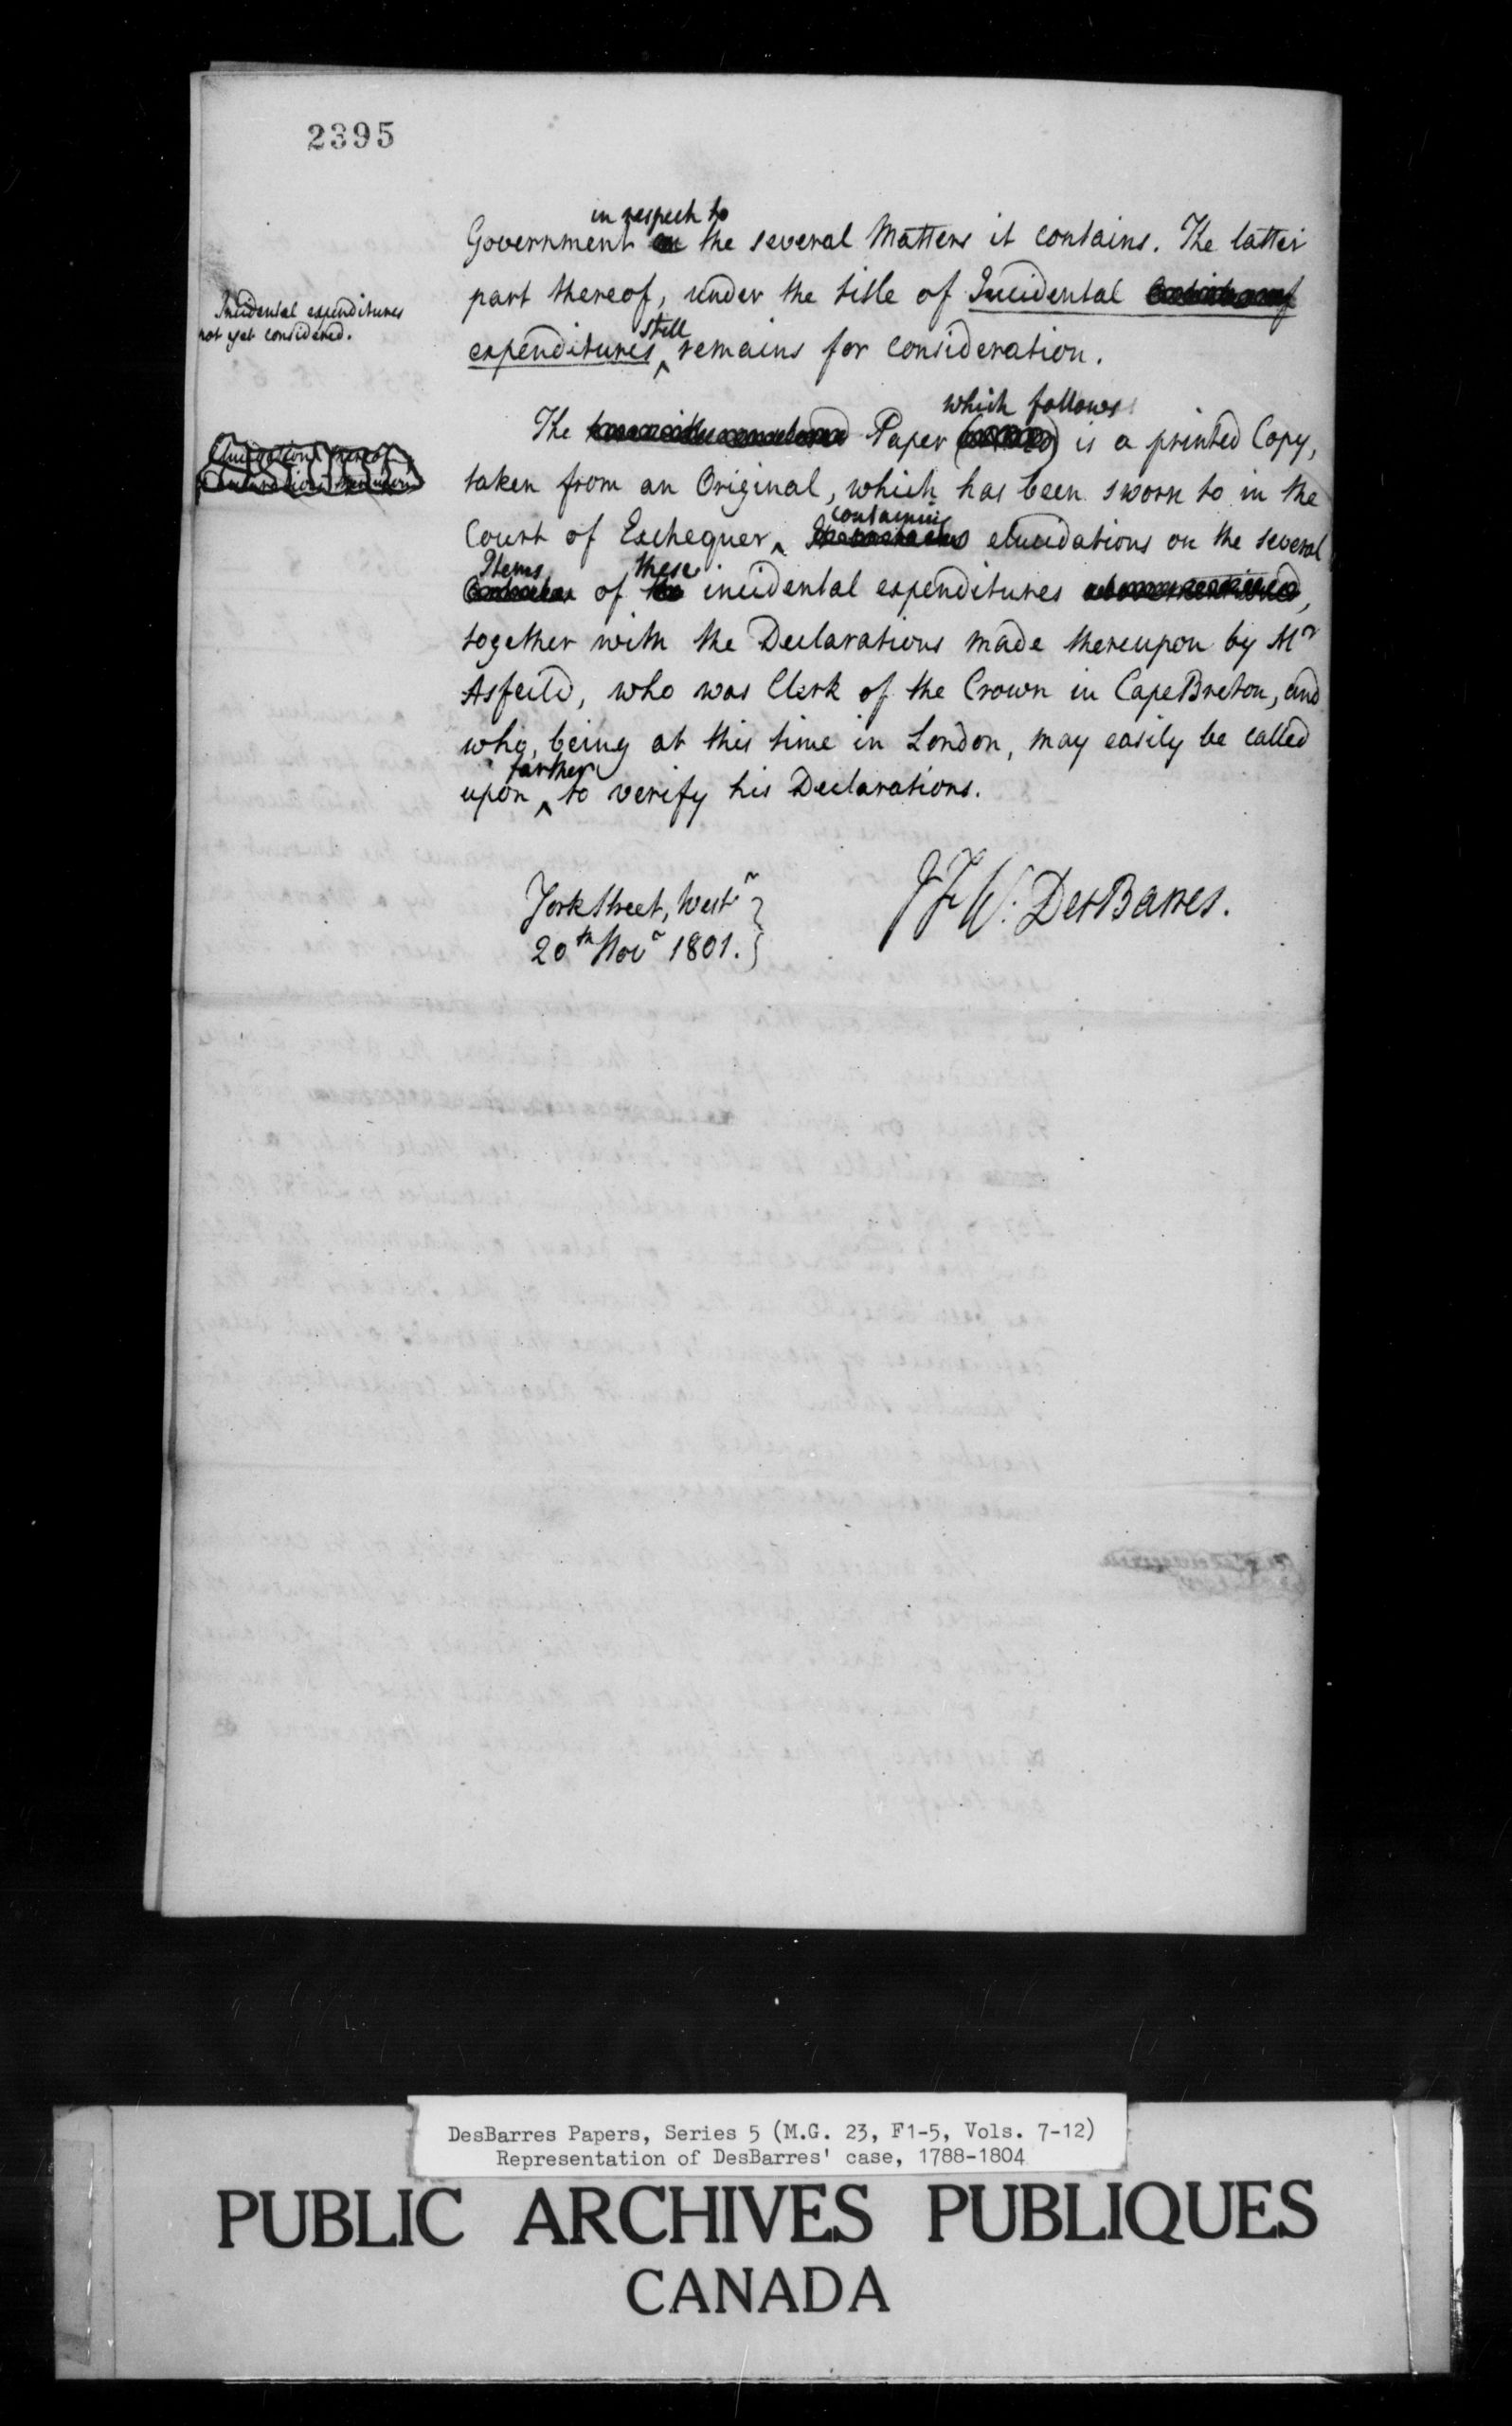 2395
in respect to
Government the several Matters it contains. The latter
part thereof, under the title of Incidental
still
expenditures ‸ remains for consideration.
Incidental expenditures
not yet considered.
which follows
The Paper is a printed Copy,
taken from an Original, which has been sworn to in the
containing
Court of Exchequer ‸ elucidations on the several
Items these
of incidental expenditures ,
together with the Declarations made thereupon by Mr
Asfeild, who was Clerk of the Crown in Cape Breton, and
who, being at this time in London, may easily be called
farther
upon ‸ to verify his Declarations.
York Street, Westr
20th Novr 1801.
J F W: DesBarres.
DesBarres Papers, Series 5 (M.G. 23, F1-5, Vols. 7-12)
Representation of DesBarres' case, 1788-1804
PUBLIC ARCHIVES PUBLIQUES
CANADA